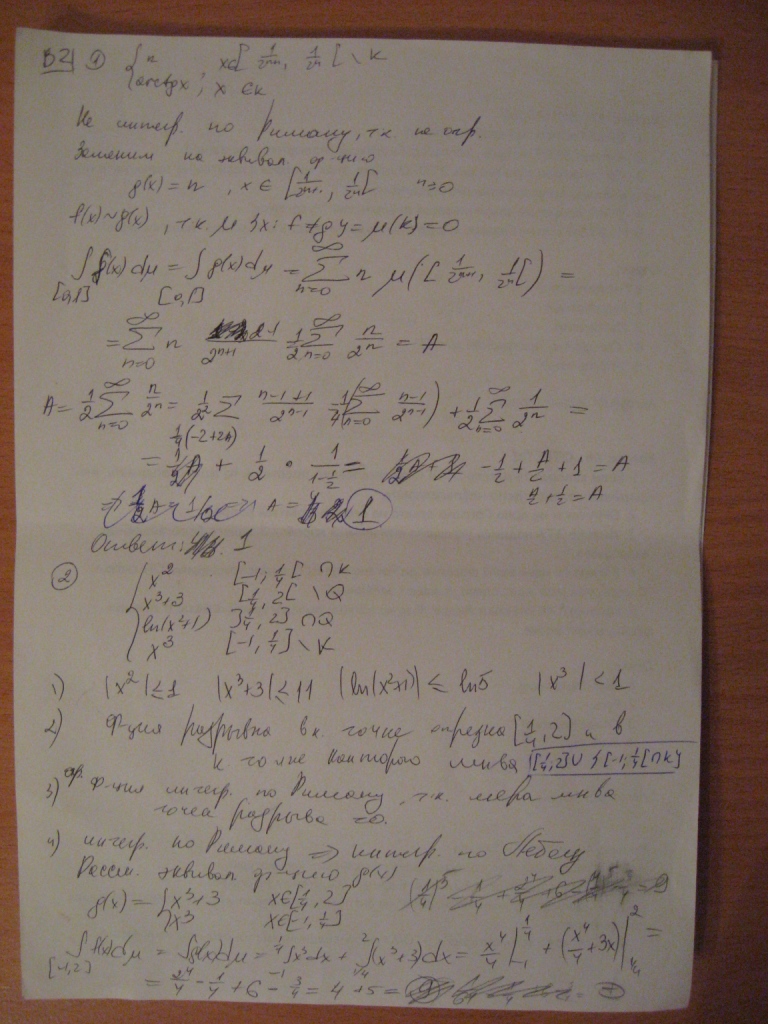 В2 ① { n x∈[ 1/2ⁿ⁺¹, 1/2ⁿ [ \ K
arctg x ; x ∈ K
Не интегр. по Риману, т.к. не огр.
Заменим на эквивал. ф-цию
g(x) = n , x ∈ [ 1/2ⁿ⁺¹, 1/2ⁿ [ n≥0
f(x)~g(x) , т.к. μ{x: f≠g} = μ(K) = 0
∫[0,1] f(x)dμ = ∫[0,1] g(x)dμ = Σ n=0 ∞ n μ([ 1/2ⁿ⁺¹, 1/2ⁿ [) =
= Σ n=0 ∞ n 2-1/2ⁿ⁺¹ 1/2 Σ n=0 ∞ n/2ⁿ = A
A = 1/2 Σ n=0 ∞ n/2ⁿ = 1/2² Σ n-1+1/2ⁿ⁻¹ 1/4(Σ n=0 ∞ n-1/2ⁿ⁻¹) + 1/2 Σ n=0 ∞ 1/2ⁿ =
1/4(-2+2A)
= + 1/2 · 1/1-1/2 = -1/2 + A/2 + 1 = A
A/2 + 1/2 = A
A = 1
Ответ: 1
② { x² [-1, 1/4[ ∩ K
x³+3 [1/4, 2[ \ Q
ln(x²+1) ]1/4, 2] ∩ Q
x³ [-1, 1/4] \ K
1) |x²| ≤ 1 |x³+3| ≤ 11 |ln(x²+1)| ≤ ln5 |x³| < 1
2) Ф-ция разрывна в к. точке отрезка [1/4, 2] и в
к. точке которого мн-ва [1/4,2] ∪ {[-1, 1/4[ ∩ K}
3) Ф-ция интегр. по Риману, т.к. мера мн-ва
точек разрыва =0.
4) интегр. по Риману ⇒ интегр. по Лебегу
Рассм. эквивал. ф-цию g(x)
g(x) = { x³+3 x∈[1/4, 2]
x³ x∈[-1, 1/4]
∫[-1,2] f(x)dμ = ∫g(x)dμ = ∫-1 1/4 x³dx + ∫1/4 2 (x³+3)dx = x⁴/4 |-1 1/4 + (x⁴/4 + 3x)|1/4 2 =
= 2⁴/4 - 1/4 + 6 - 3/4 = 4 + 5 = 9